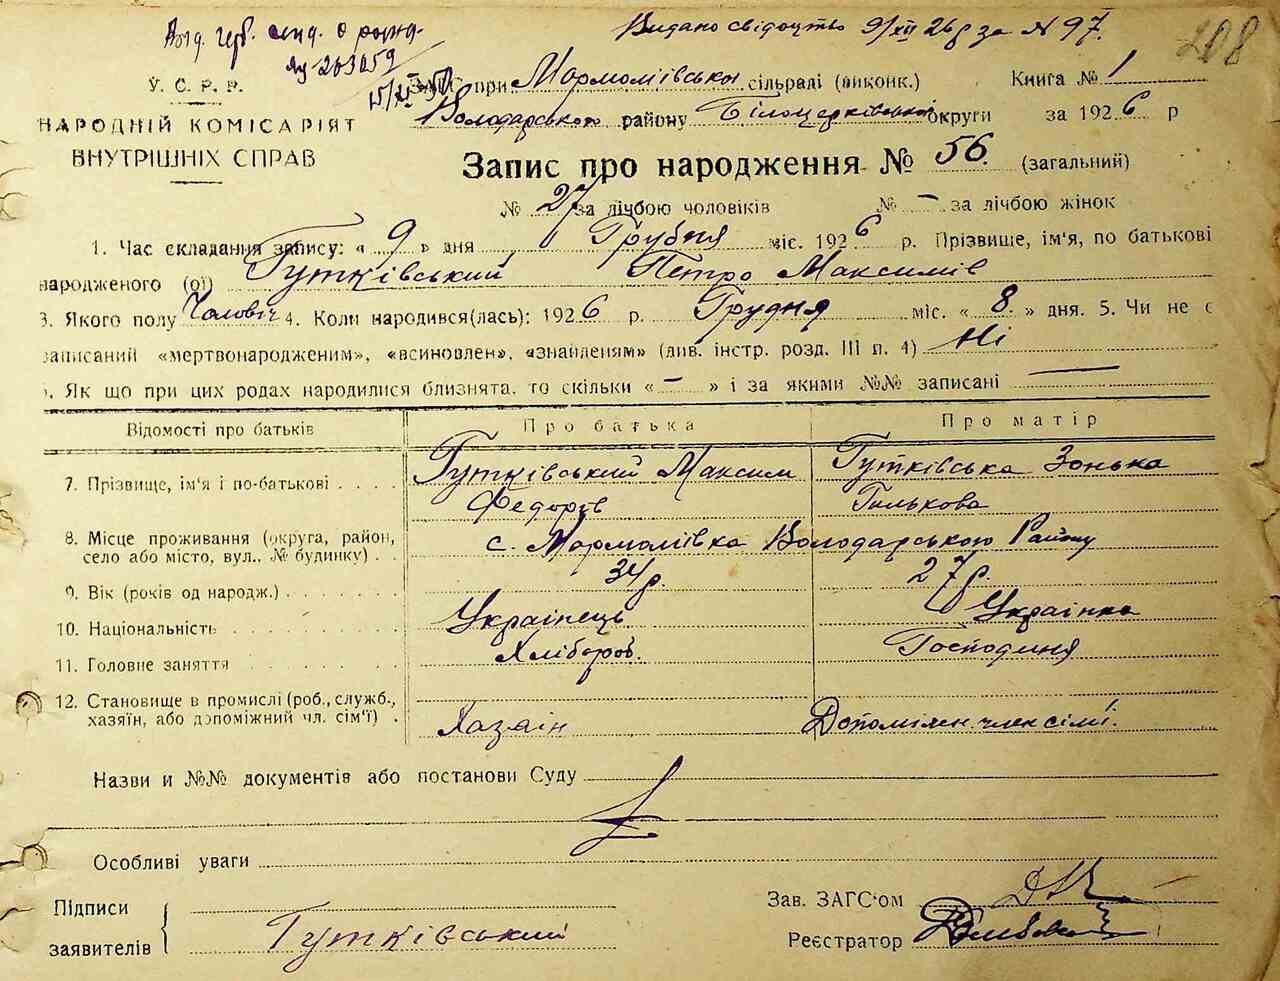 Видано свідоцтво 9/XII 26 р за № 97.
208
У. С. Р. Р.
НАРОДНІЙ КОМІСАРІЯТ
ВНУТРІШНІХ СПРАВ
ЗАГС при Мармоліївській сільраді (виконк.) Книга № 1
Володарського району Білоцерківської округи за 1926 р
Запис про народження № 56. (загальний)
№ 27 за лічбою чоловіків № – за лічбою жінок
1. Час складання запису: « 9 » дня Грудня міс. 1926 р. Прізвище, ім'я, по батькові
народженого (ої) Гутківський Петро Максимів
3. Якого полу Чоловіч 4. Коли народився(лась): 1926 р. Грудня міс. « 8 » дня. 5. Чи не є
записаний «мертвонародженим», «всиновлен», «знайденям» (див. інстр. розд. III п. 4) Ні
6. Як що при цих родах народилися близнята, то скільки « – » і за якими №№ записані —
Відомості про батьків Про батька Про матір
7. Прізвище, ім'я і по-батькові Гутківський Максим Федорів Гутківська Зонька Гилькова
8. Місце проживання (округа, район, село або місто, вул., № будинку) с. Мармоліївка Володарського Району
9. Вік (років од народж.) 34 р. 27 р.
10. Національність Українець Українка
11. Головне заняття Хлібороб. Господиня
12. Становище в промислі (роб., служб., хазяїн, або допоміжний чл. сім'ї) Хазаін Допоміжн. член сімї.
Назви и №№ документів або постанови Суду
Особливі уваги
Підписи заявителів Гутківський
Зав. ЗАГС'ом
Реєстратор